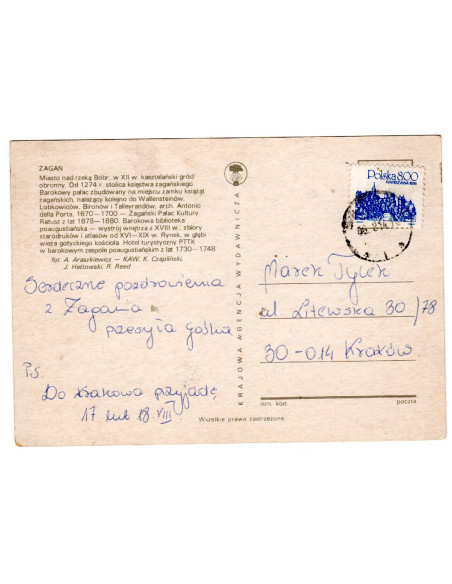 ŻAGAŃ
Miasto nad rzeką Bóbr, w XII w. kasztelański gród
obronny. Od 1274 r. stolica księstwa żagańskiego.
Barokowy pałac zbudowany na miejscu zamku książąt
żagańskich, należący kolejno do Wallensteinów,
Lobkowiców, Bironów i Talleyrandów, arch. Antonio
della Porta, 1670—1700 — Żagański Pałac Kultury.
Ratusz z lat 1878—1880. Barokowa biblioteka
poaugustiańska — wystrój wnętrza z XVIII w., zbiory
starodruków i atlasów od XVI—XIX w. Rynek, w głębi
wieża gotyckiego kościoła. Hotel turystyczny PTTK
w barokowym zespole poaugustiańskim z lat 1730—1748
fot. A. Araszkiewicz — KAW. K. Czapliński,
J. Hattowski, R. Reed
Serdeczne pozdrowienia
z Żagania
przesyła Gośka
Ps.
Do Krakowa przyjadę
17 lub 18 VIII
KRAJOWA AGENCJA WYDAWNICZA
Wszelkie prawa zastrzeżone
Polska 8.00
WARSZAWA
Marek Tylek
ul. Litewska 30/78
30-014 Kraków
ozn. kod poczta